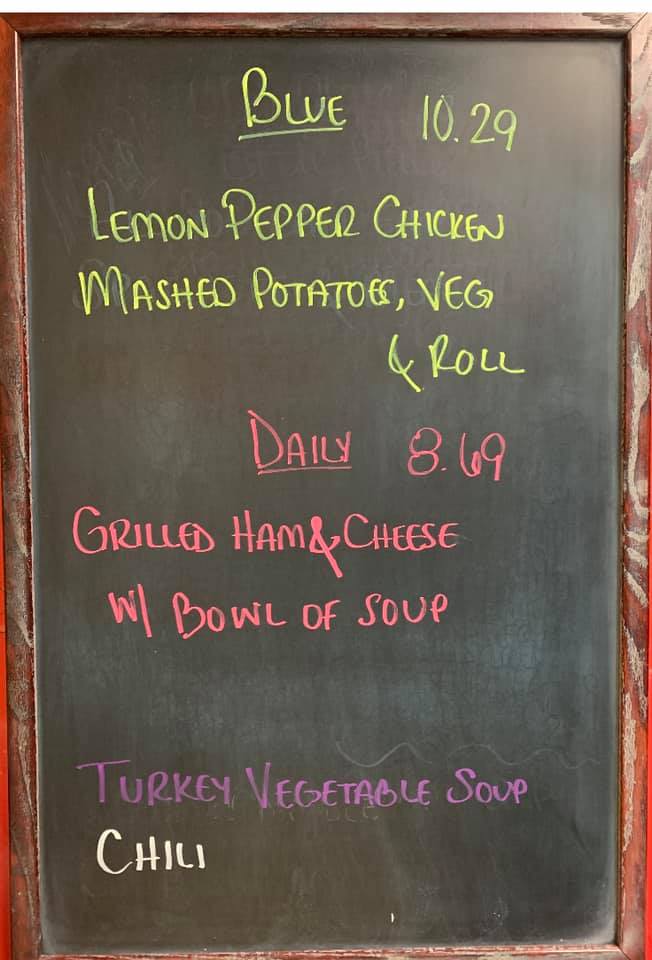 BLUE 10.29
LEMON PEPPER CHICKEN
MASHED POTATOES, VEG
& ROLL
DAILY 8.69
GRILLED HAM & CHEESE
W/ BOWL OF SOUP
TURKEY VEGETABLE SOUP
CHILI